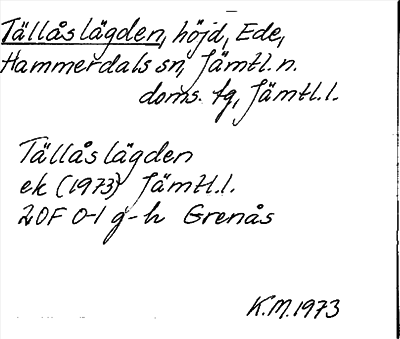 Tällåslägden, höjd, Ede,
Hammerdals sn, Jämtl. n.
doms. tg, Jämtl. l.
Tällåslägden
ek (1973) Jämtl. l.
20F 0-1 g-h Grenås
K.M. 1973